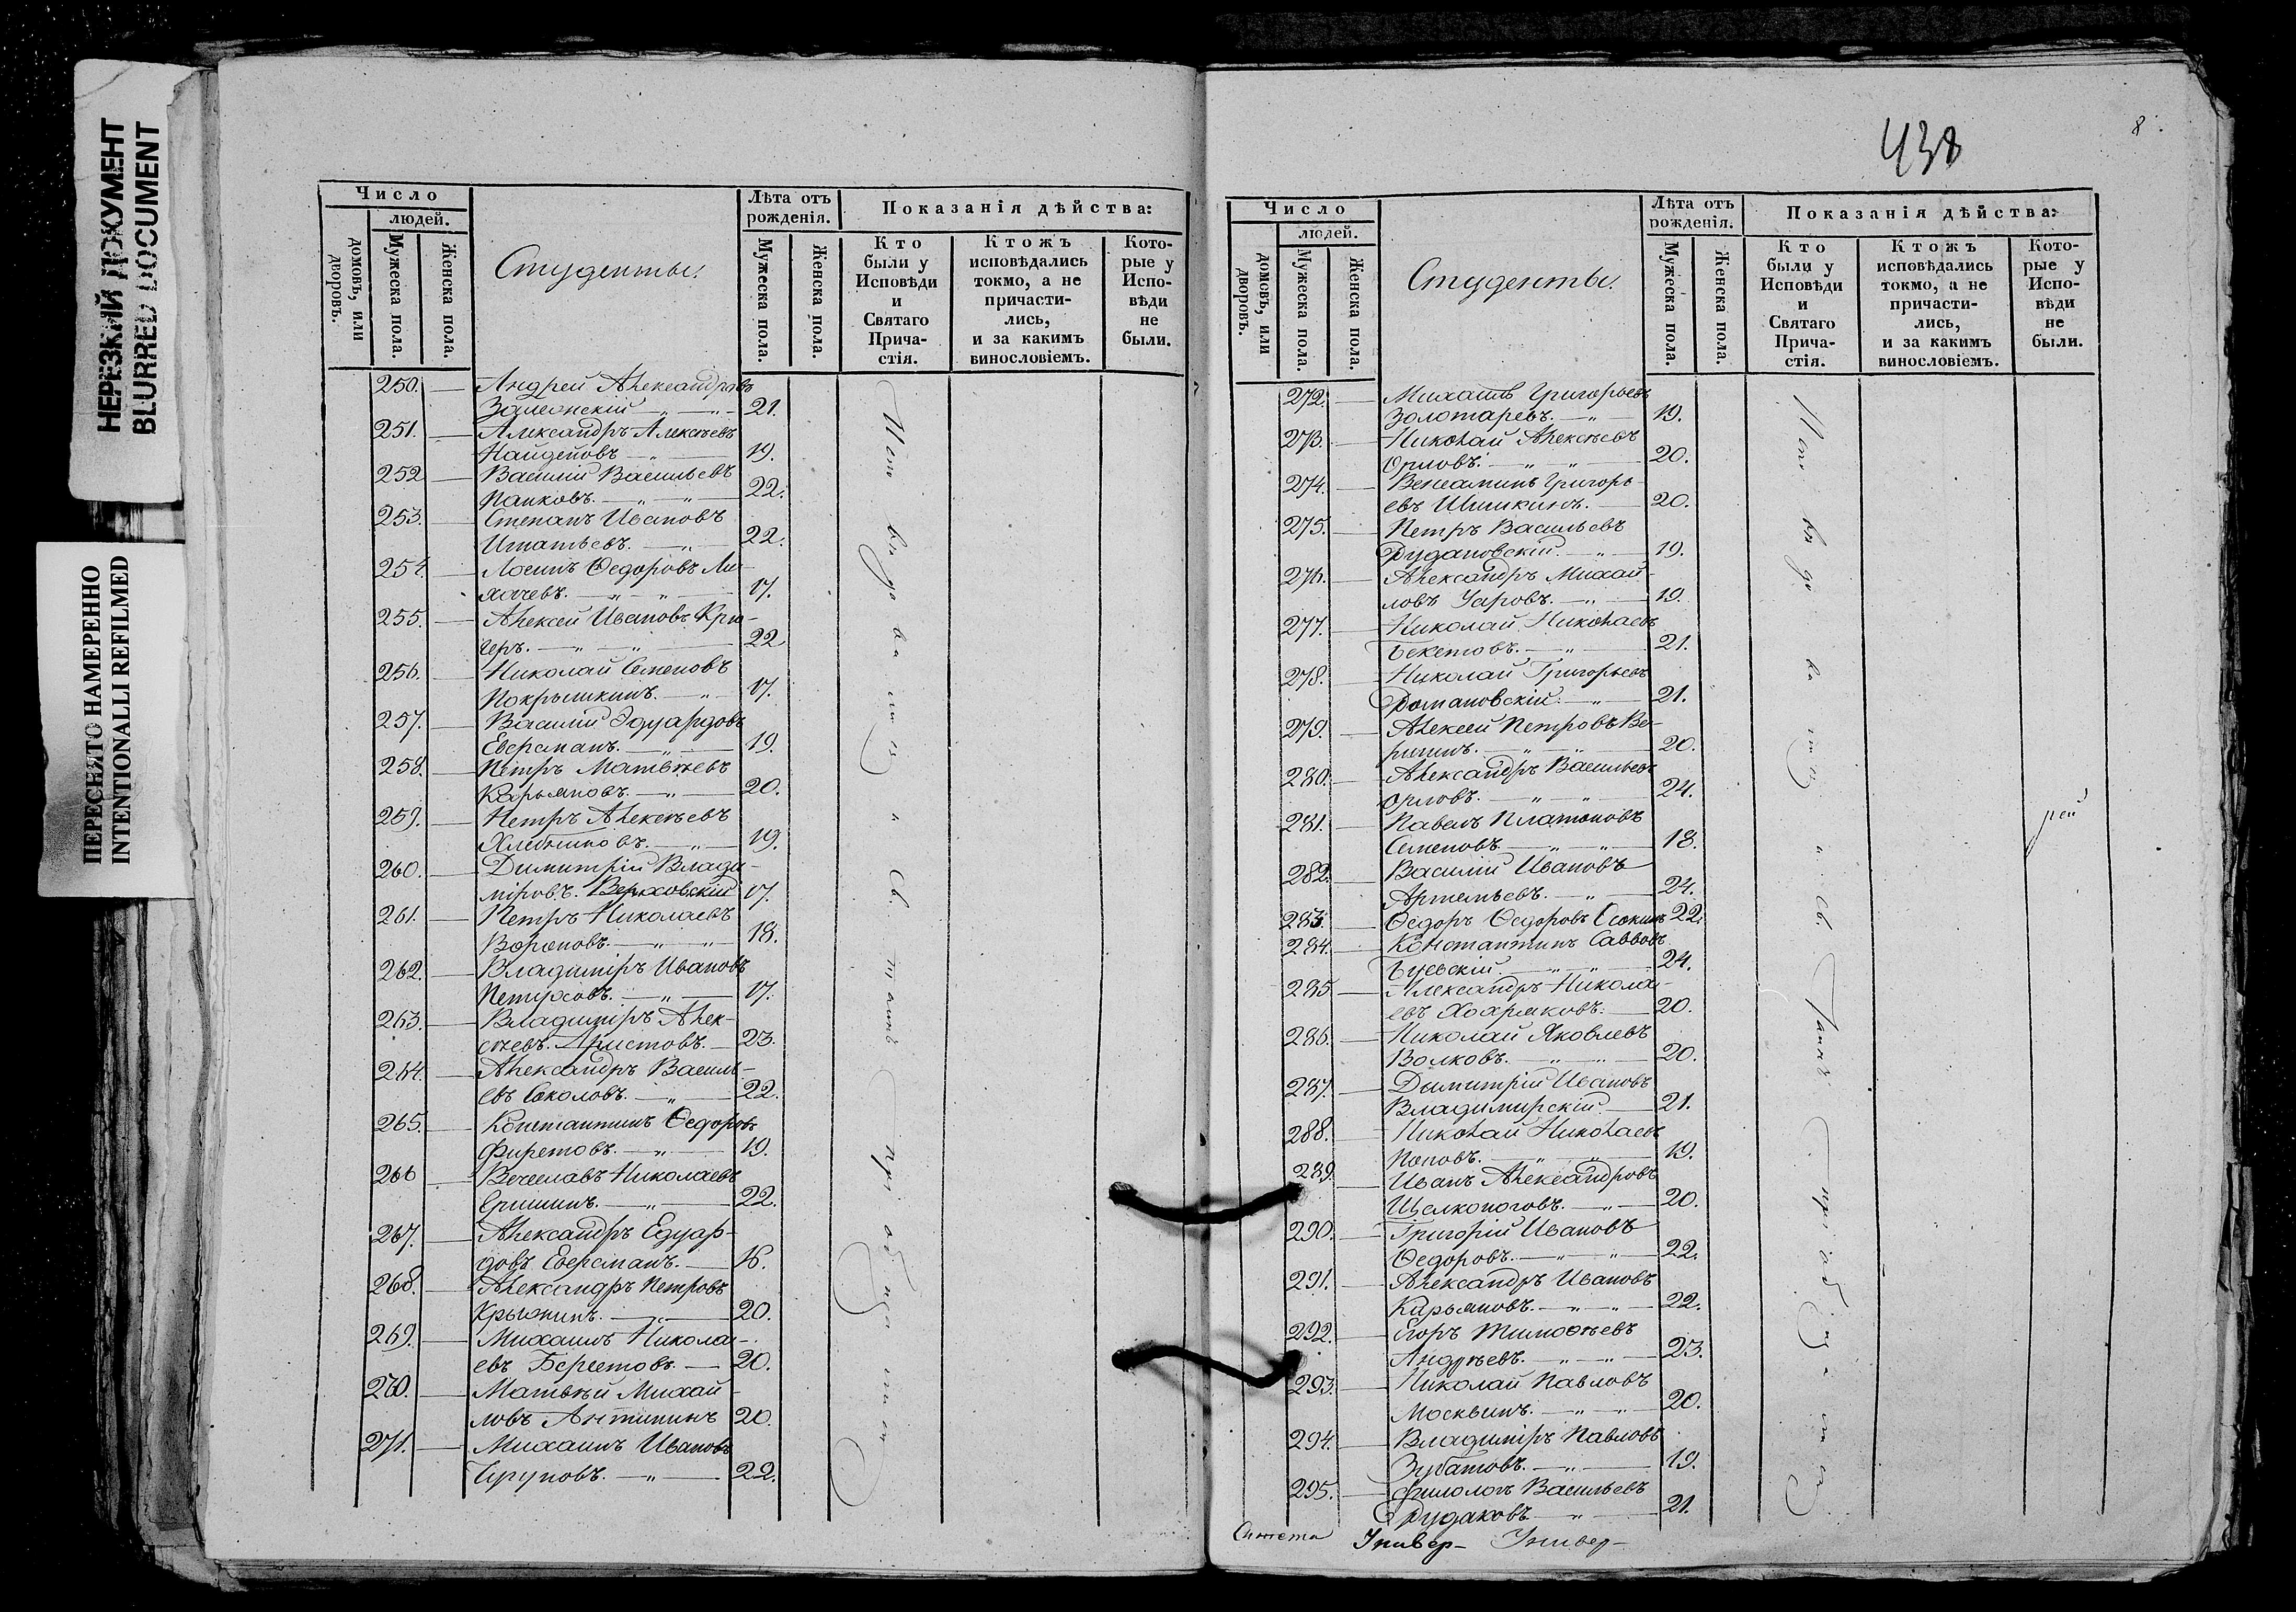 НЕРЕЗКИЙ ДОКУМЕНТ
BLURRED DOCUMENT
ПЕРЕСНЯТО НАМЕРЕННО
INTENTIONALLI REFILMED
Число
людей.
домовъ, или дворовъ.
Мужеска пола.
Женска пола.
Студенты.
Лѣта отъ
рожденія.
Мужеска пола.
Женска пола.
Показанія дѣйства:
Кто
были у
Исповѣди
и
Святаго
Прича-
стія.
Ктожъ
исповѣдались
токмо, а не
причасти-
лись,
и за какимъ
винословіемъ.
Кото-
рые у
Испо-
вѣди
не
были.
250. Андрей Александровъ
Залеонскій 21.
251. Александръ Алексѣевъ
Найденовъ 19.
252 Василій Васильевъ
Папковъ. 22.
253. Степанъ Ивановъ
Игнатьевъ. 22.
254. Ѳедоровъ Ли-
хачевъ. 17.
255. Алексей Ивановъ Крю-
геръ. 22
256. Николай Семеновъ
Покрышкинъ. 17.
257. Василій Эдуардовъ
Еверсманъ. 19.
258. Петръ Матвѣевъ
Карьяновъ. 20.
259. Петръ Алексѣевъ
Хлебниковъ. 19.
260. Димитрій Влади-
міровъ. Верховскій 17.
261. Петръ Николаевъ
Вороновъ. 18.
262. Владиміръ Ивановъ
Петуховъ. 17.
263. Владиміръ Алек-
сѣевъ. Аристовъ. 23.
264. Александръ Василь-
евъ Соколовъ. 22.
265. Константинъ Ѳедоровъ
Фиретовъ. 19.
266 Вечеславъ Николаевъ
Еришинъ. 22.
267. Александръ Едуар-
довъ Еверсманъ. 16.
268. Александръ Петровъ
Крыжинъ. 20.
269. Михаилъ Никола-
евъ Берестовъ. 20.
270. Матвѣй Михай-
ловъ Антипинъ 20.
271. Михаилъ Ивановъ
22.
438
8.
Число
людей.
домовъ, или дворовъ.
Мужеска пола.
Женска пола.
Студенты.
Лѣта отъ
рожденія.
Мужеска пола.
Женска пола.
Показанія дѣйства:
Кто
были у
Исповѣди
и
Святаго
Прича-
стія.
Ктожъ
исповѣдались
токмо, а не
причасти-
лись,
и за какимъ
винословіемъ.
Кото-
рые у
Испо-
вѣди
не
были.
272. Михаилъ Григорьевъ
Золотаревъ. 19.
273. Николай Алексѣевъ
Орловъ. 20.
274. Веніаминъ Григорь-
евъ Шишкинъ. 20.
275. Петръ Васильевъ
Рудановскій. 19.
276. Александръ Михай-
ловъ Уаровъ. 19.
277. Николай Николаевъ
Бекетовъ. 21.
278. Николай Григорьевъ
Романовскій. 21.
279. Алексей Петровъ Ве-
ригинъ. 20.
280. Александръ Васильевъ
Орловъ. 24.
281. Павелъ Платоновъ
Семеновъ 18.
282. Василій Ивановъ
Артемьевъ. 24.
283. Ѳедоръ Ѳедоровъ Осокинъ 22.
284. Константинъ Саввовъ
Буевскій. 24.
285 Александръ Никола-
евъ 20.
286. Николай Яковлевъ
Волковъ. 20.
287. Димитрій Ивановъ
Владимирскій 21.
288. Николай Николаевъ
Поповъ. 19.
289. Иванъ Александровъ
Щелконоговъ. 20.
290. Григорій Ивановъ
Ѳедоровъ. 22.
291. Александръ Ивановъ
Карьяновъ. 22.
292. Егоръ Тимоѳѣевъ
Андрѣевъ. 23.
293. Николай Павловъ
Москвинъ. 20.
294. Владиміръ Павловъ
Зубатовъ. 19.
295. Филологъ Васильевъ
Рудаковъ 21.
рей
Универ- Универ-